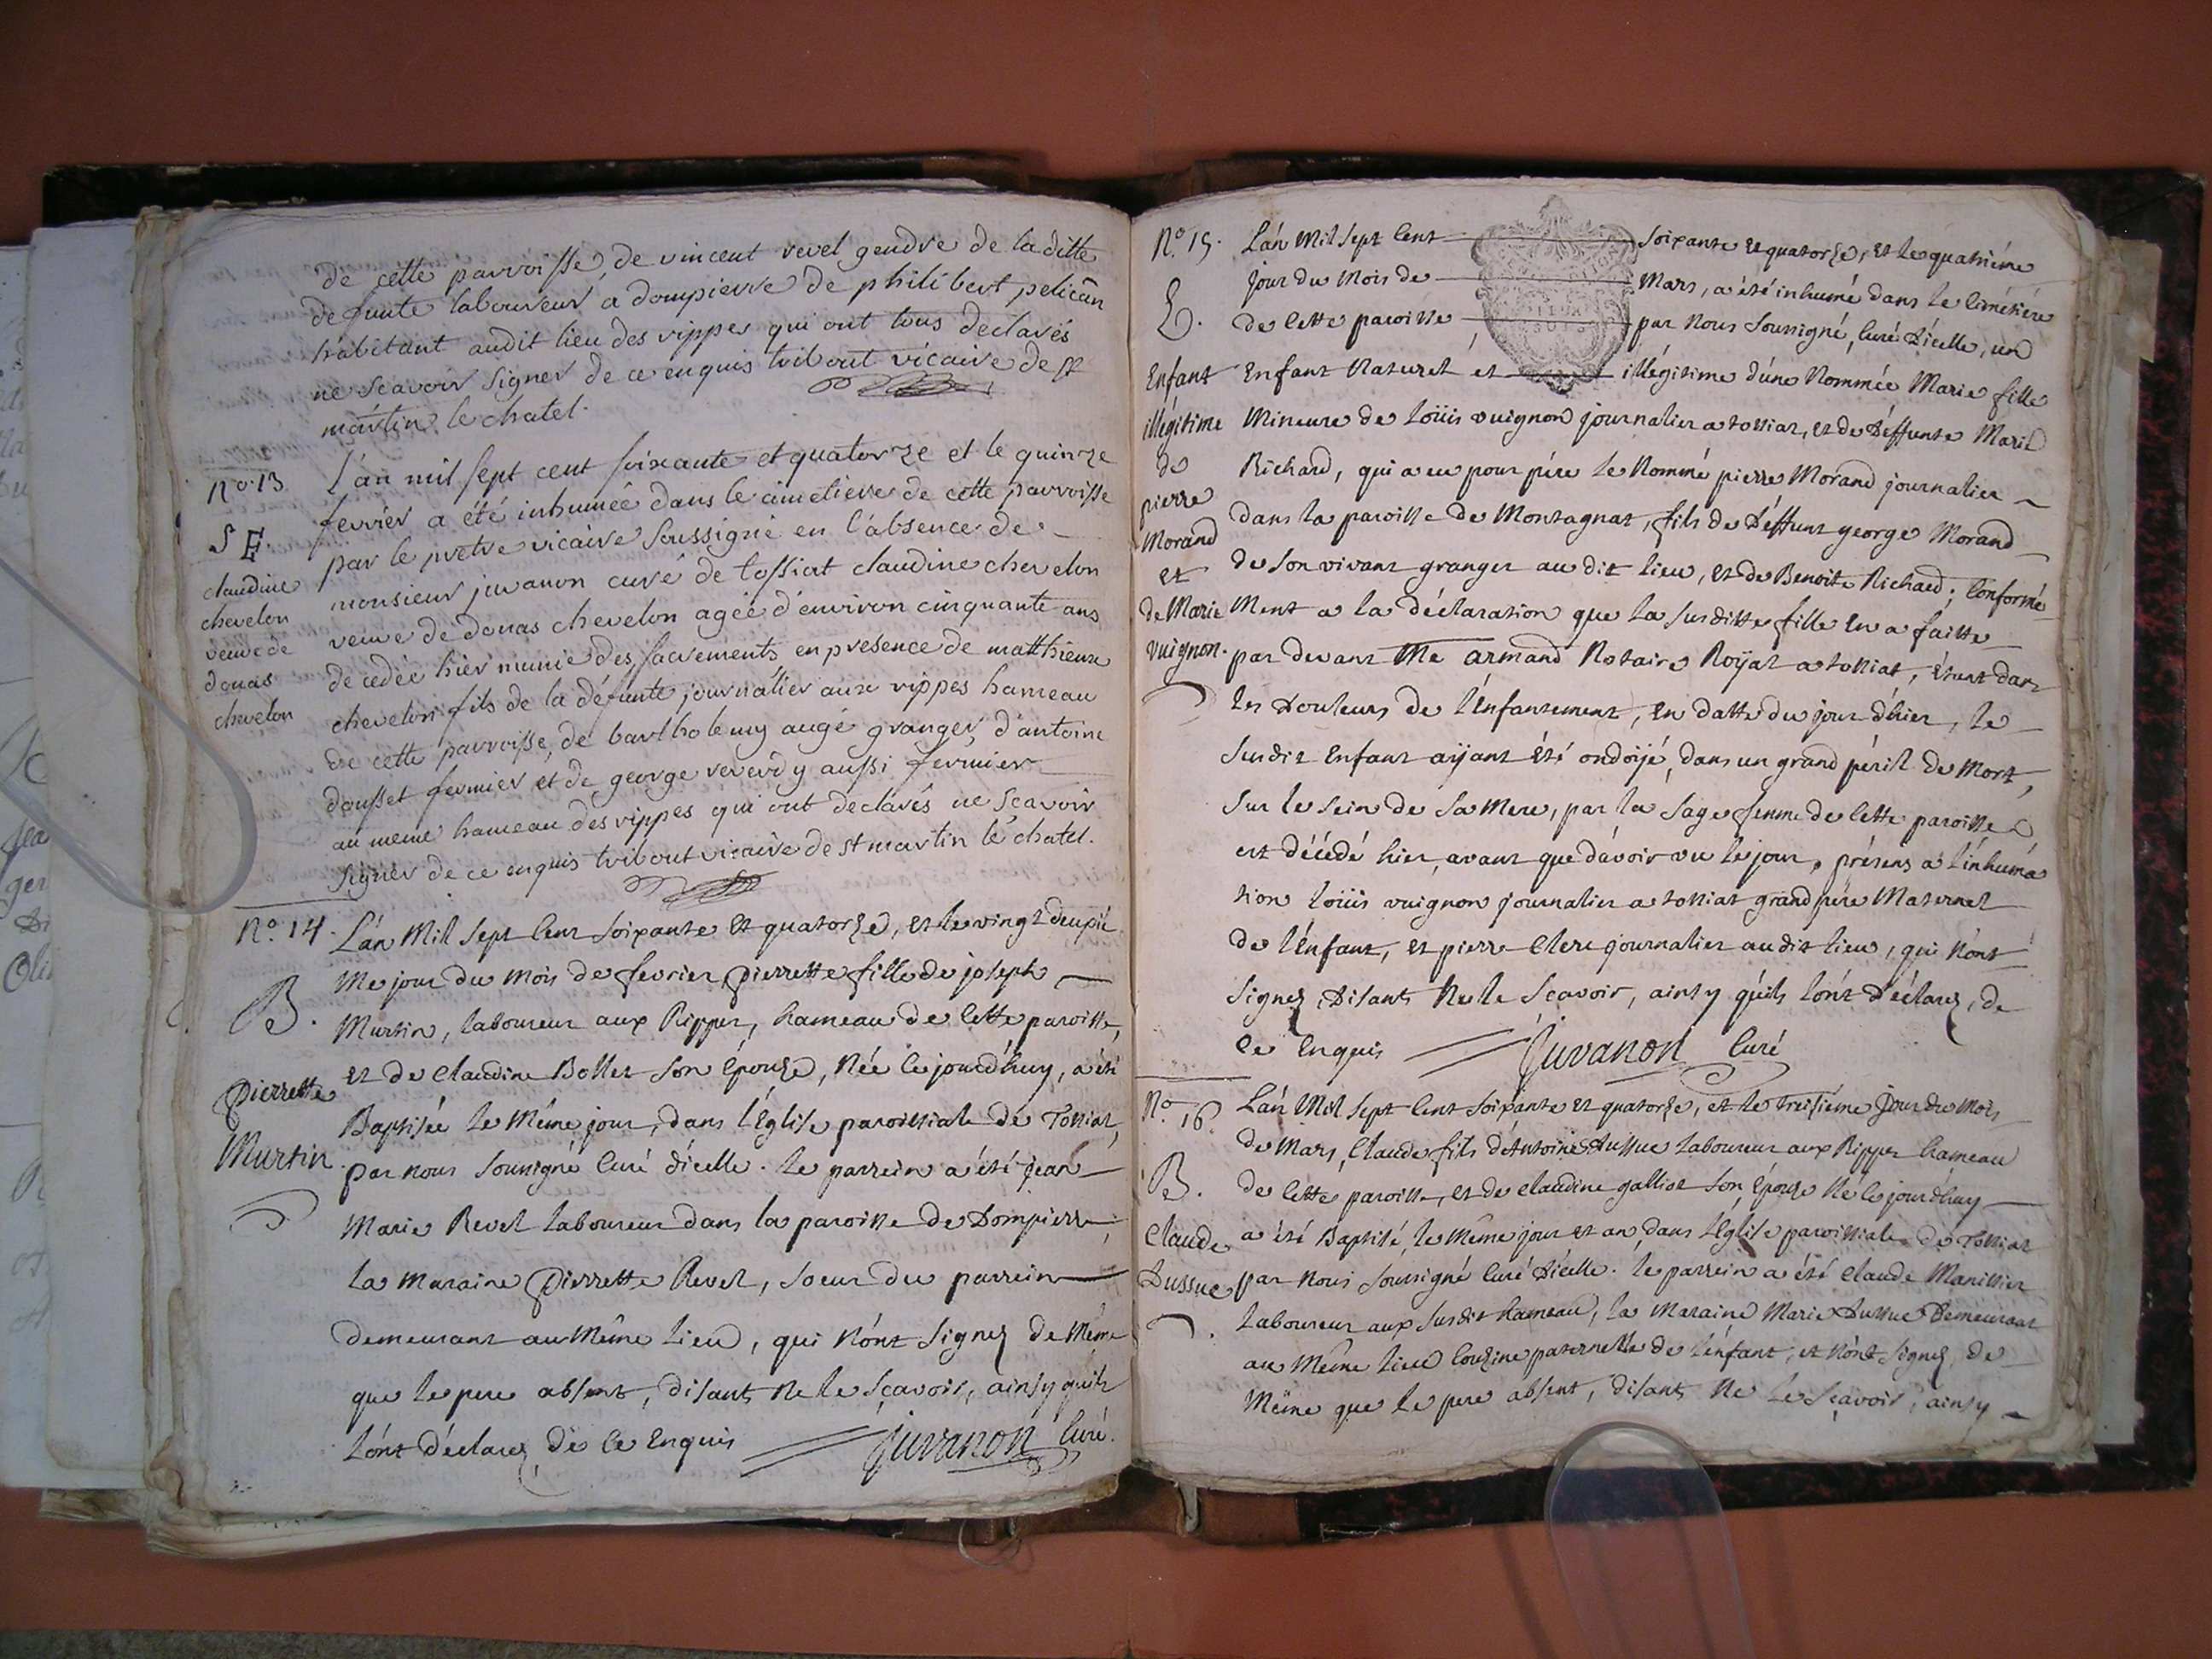 de cette parroisse, de vincent revel gendre de la ditte
defunte laboureur a dompierre de philibert pelican
habitant audit lieu des rippes qui ont tous declarés
ne scavoir signer de ce enquis tribout vicaire de st
martin le chatel.
No. 13
S E.
claudine
chevelon
veuve de
donas
chevelon
l'an mil sept cent soixante et quatorze et le quinze
fevrier a été inhumée dans le cimetiere de cette parroisse
par le pretre vicaire soussigné en l'absence de
monsieur juvanon curé de tossiat claudine chevelon
veuve de donas chevelon agée d'environ cinquante ans
decedée hier munie des sacrements en presence de matthieu
chevelon fils de la défunte journalier aux rippes hameau
de cette parroisse, de bartholemy augé granger d'antoine
dousset fermier et de george reverdy aussi fermier
au meme hameau des rippes qui ont declarés ne scavoir
signer de ce enquis tribout vicaire de st martin le chatel.
No. 14.
B.
Pierrette
Murtin.
L'an Mil sept cent soixante et quatorze, et le vingt deuxié
me jour du mois de fevrier pierrette fille de joseph
Murtin, laboureur aux Rippes, hameau de cette paroisse,
et de Claudine Bollet son épouse, Née ce jourd'huy, a été
Baptisée le Même jour, dans l'Église paroissiale de Tossiat,
par nous soussigné Curé d'icelle. le parrein a été jean
Marie Revel laboureur dans la paroisse de Dompierre;
la maraine Pierrette Revel, soeur du parrein
demeurant au Même lieu, qui n'ont signez de Même
que le pere absent, disants ne le sçavoir, ainsy qu'ils
l'ont déclarez de ce enquis Juvanon Curé.
No. 15.
E.
Enfant
illégitime
de
pierre
Morand
et
de Marie
vuignon.
L'an Mil sept cent soixante et quatorze, et le quatriéme
jour du Mois de Mars, a été inhumé dans le cimétiére
de cette paroisse par Nous soussigné, Curé d'icelle, un
Enfant Naturel et illégitime d'une Nommée Marie fille
Mineure de Loüis vuignon journalier a tossiat, et de déffunte Marie
Richard, qui a eu pour pére le Nommé pierre Morand journalier
dans la paroisse de Montagnat, fils de déffunt george Morand
de son vivant granger au dit lieu, et de Benoite Richard; conformé
Ment a la déclaration que la susditte fille en a faitte
par devant Me armand Notaire Royal a tossiat, étant dans
les douleurs de l'Enfantement, en datte du jour d'hier, le
susdit Enfant aÿant été ondoÿé, dans un grand péril de Mort,
sur le sein de sa Mere, par la sage femme de cette paroisse
est décédé hier, avant que d'avoir vu le jour, présens a l'inhuma
tion Loüis vuignon journalier a tossiat grand pére Maternel
de l'Enfant, et pierre Clerc journalier audit lieu, qui N'ont
signez disants Ne le sçavoir, ainsy qu'ils l'ont déclarez, de
ce Enquis Juvanon Curé
No. 16.
B.
Claude
Dussue
L'an Mil sept cent soixante et quatorze, et le Treisiéme Jour du Mois
de Mars, Claude fils d'Antoine Dussue Laboureur aux Rippes hameau
de cette paroisse, et de Claudine galliot son Épouse Né ce jourdhuy
a été Baptisé, le Même jour et an, dans l'Église paroissiale de Tossiat
par Nous soussigné Curé d'icelle. le parrein a été Claude Manissier
Laboureur aux susdit hameau, la Maraine Marie Dussue Demeurant
au Même lieu Cousine paternelle de l'enfant, et n'ont signez, de
Même que le pere absent, disants Ne le sçavoir, ainsy